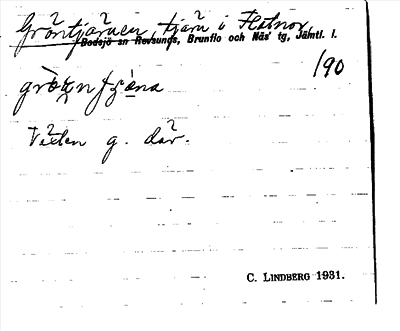 Gröntjärnen, tjärn i Flatnor,
Bodsjö sn Revsunds, Brunflo och Näs' tg, Jämtl. l.
190
Växten g. där.
C. LINDBERG 1931.